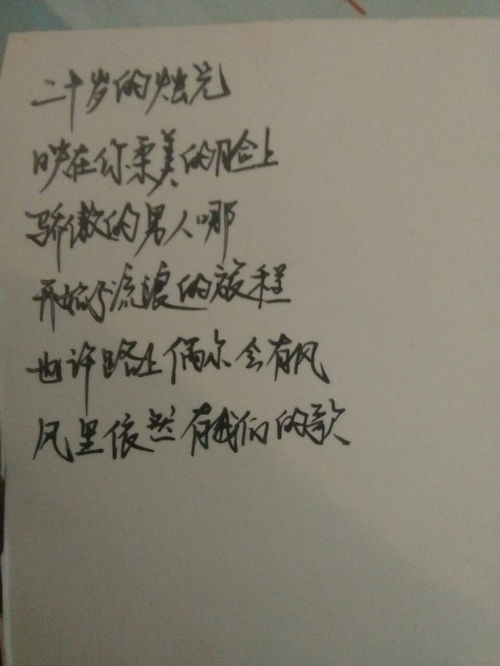 二十岁的烛光
映在你柔美的脸上
骄傲的男人哪
开始了流浪的旅程
也许路上偶尔会有风
风里依然有我们的歌